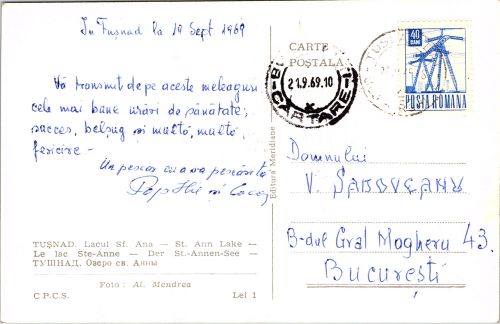 În Tuşnad la 19 Sept. 1969
Vă transmit de pe aceste meleaguri
cele mai bune urări de sănătate,
succes, belşug şi multă, multă
fericire –
Un pescar cu
Pop Ilie şi
CARTE
POŞTALĂ
21.9.69.10
CARTARE
TUŞNAD
40
BANI
POSTA ROMANA
Editura Meridiane
Domnului
V. SADOVEANU
B-dul Gral Magheru 43
Bucureşti
TUŞNAD. Lacul Sf. Ana — St. Ann Lake —
Le lac Ste-Anne — Der St.-Annen-See —
ТУШНАД. Озеро св. Анны
Foto: Al. Mendrea
C.P.C.S. Lei 1